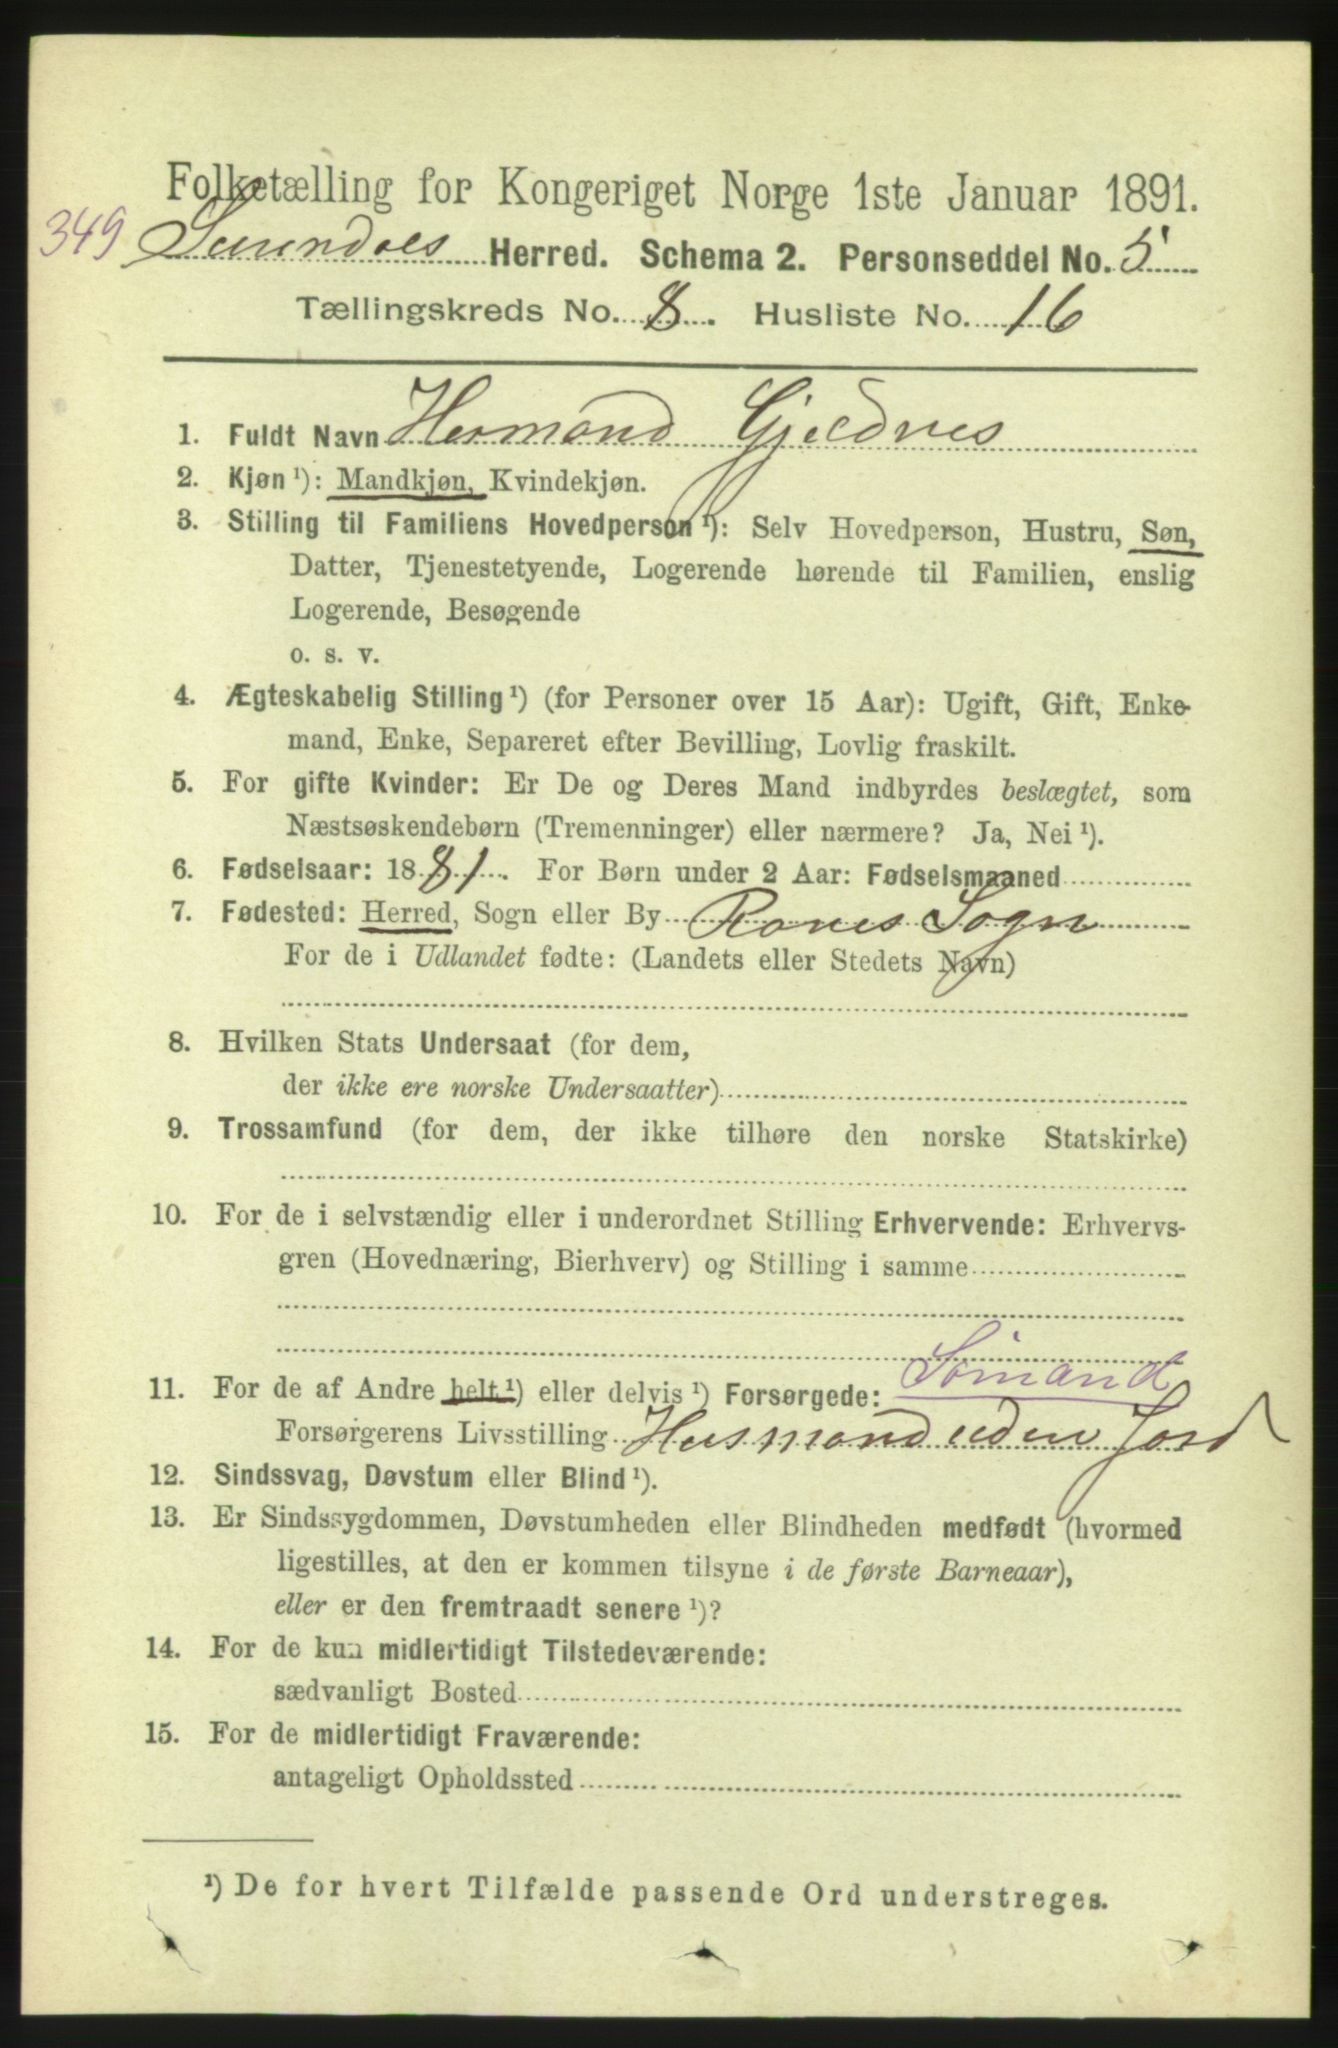 Folketælling for Kongeriget Norge 1ste Januar 1891.
349 Surendals Herred. Schema 2. Personseddel No. 5
Tællingskreds No. 8. Husliste No. 16
1. Fuldt Navn Hermand Gjeldnes
2. Kjøn ¹): Mandkjøn, Kvindekjøn.
3. Stilling til Familiens Hovedperson ¹): Selv Hovedperson, Hustru, Søn,
Datter, Tjenestetyende, Logerende hørende til Familien, enslig
Logerende, Besøgende
o. s. v.
4. Ægteskabelig Stilling ¹) (for Personer over 15 Aar): Ugift, Gift, Enke-
mand, Enke, Separeret efter Bevilling, Lovlig fraskilt.
5. For gifte Kvinder: Er De og Deres Mand indbyrdes beslægtet, som
Næstsøskendebørn (Tremenninger) eller nærmere? Ja, Nei ¹).
6. Fødselsaar: 1881. For Børn under 2 Aar: Fødselsmaaned
7. Fødested: Herred, Sogn eller By Ranes Sogn
For de i Udlandet fødte: (Landets eller Stedets Navn)
8. Hvilken Stats Undersaat (for dem,
der ikke ere norske Undersaatter)
9. Trossamfund (for dem, der ikke tilhøre den norske Statskirke)
10. For de i selvstændig eller i underordnet Stilling Erhvervende: Erhvervs-
gren (Hovednæring, Bierhverv) og Stilling i samme
Sømand
11. For de af Andre helt ¹) eller delvis ¹) Forsørgede:
Forsørgerens Livsstilling Husmand uden Jord
12. Sindssvag, Døvstum eller Blind ¹).
13. Er Sindssygdommen, Døvstumheden eller Blindheden medfødt (hvormed
ligestilles, at den er kommen tilsyne i de første Barneaar),
eller er den fremtraadt senere ¹)?
14. For de kun midlertidigt Tilstedeværende:
sædvanligt Bosted
15. For de midlertidigt Fraværende:
antageligt Opholdssted
¹) De for hvert Tilfælde passende Ord understreges.